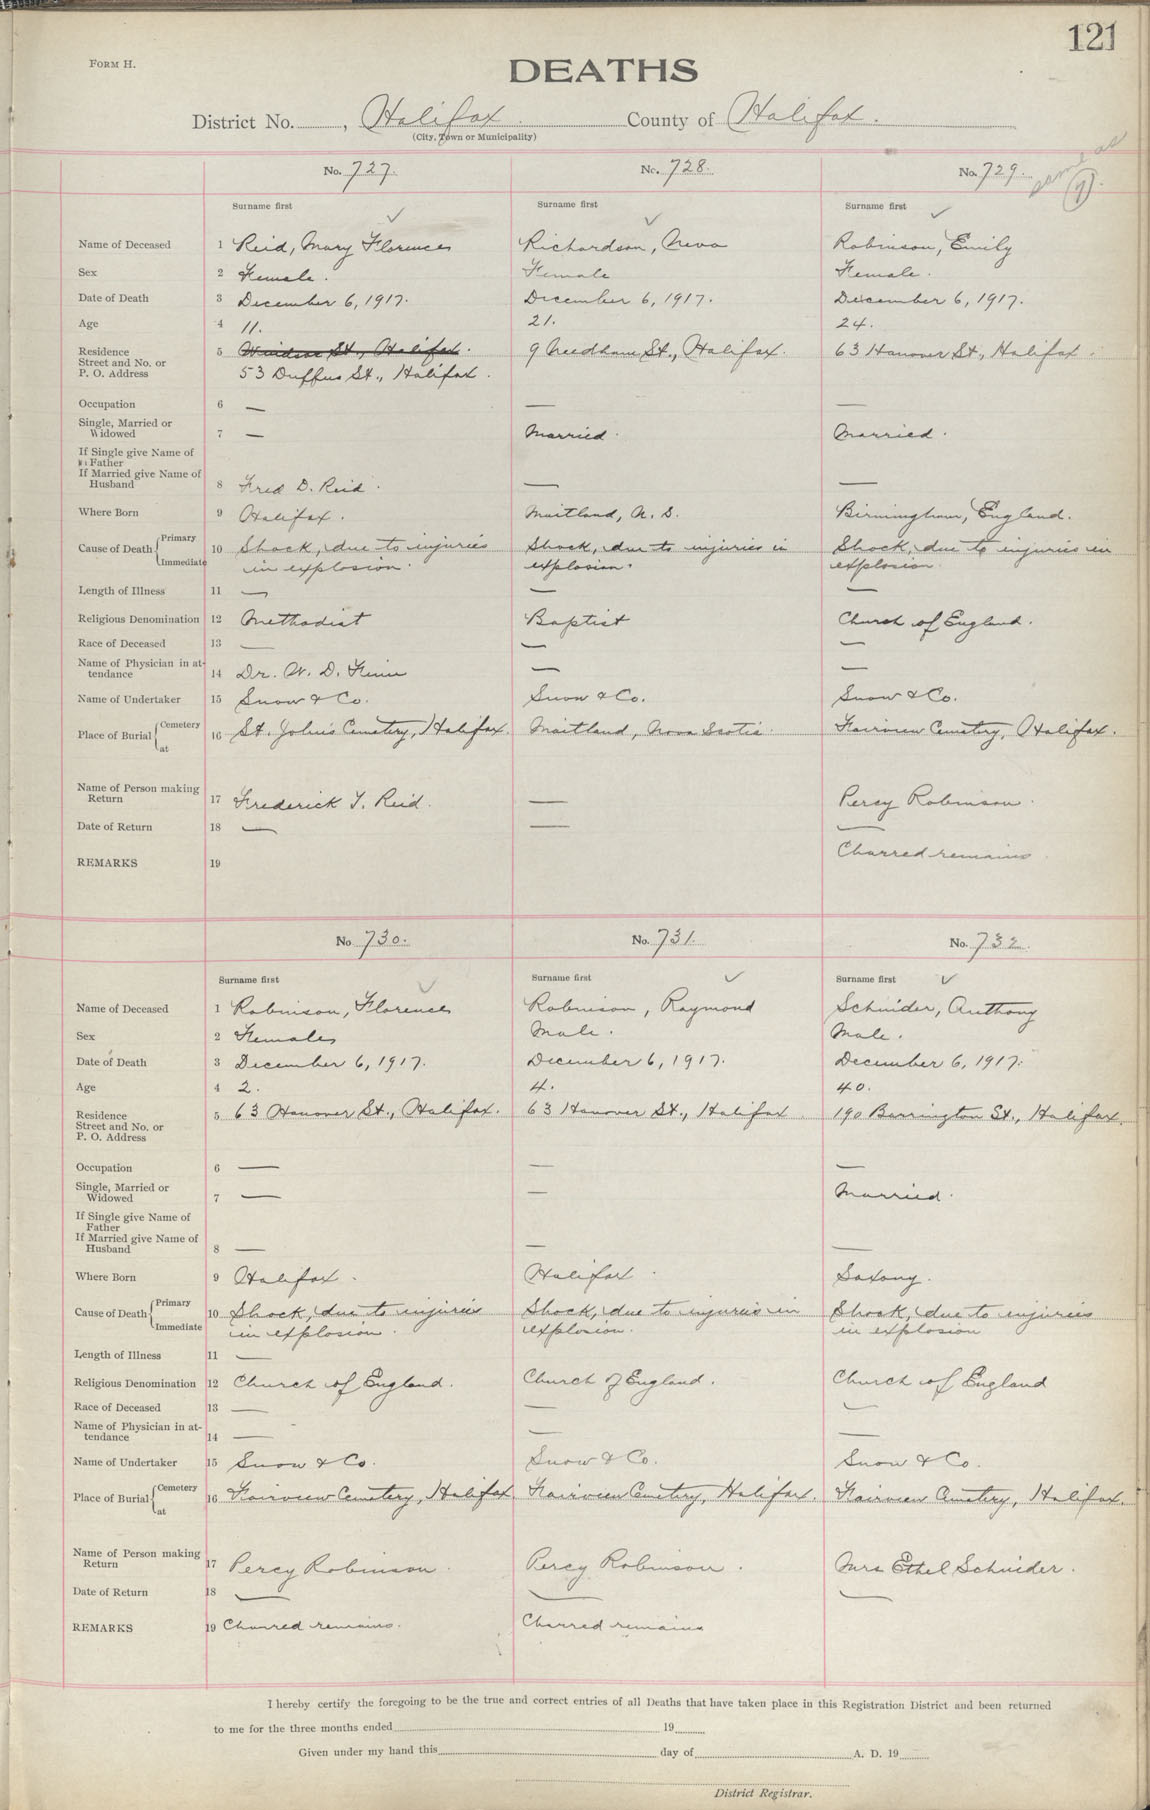 121
FORM H.
DEATHS
District No. , Halifax County of Halifax.
(City, Town or Municipality)
same as
No. 727. No. 728. No. 729.
Surname first Surname first Surname first
Name of Deceased 1 Reid, Mary Florence Richardson, Neva Robinson, Emily
Sex 2 Female. Female Female.
Date of Death 3 December 6, 1917. December 6, 1917. December 6, 1917.
Age 4 11. 21. 24.
Residence 5 Windsor St., Halifax. 9 Needham St., Halifax. 63 Hanover St., Halifax.
Street and No. or
P. O. Address 53 Duffus St., Halifax.
Occupation 6 — — —
Single, Married or
Widowed 7 — Married. Married.
If Single give Name of
Father
If Married give Name of
Husband 8 Fred D. Reid. — —
Where Born 9 Halifax. Maitland, N. S. Birmingham, England.
Cause of Death { Primary 10 Shock, due to injuries Shock, due to injuries in Shock, due to injuries in
Immediate in explosion. explosion. explosion.
Length of Illness 11 — — —
Religious Denomination 12 Methodist Baptist Church of England.
Race of Deceased 13 — — —
Name of Physician in at-
tendance 14 Dr. W. D. Finn — —
Name of Undertaker 15 Snow & Co. Snow & Co. Snow & Co.
Place of Burial { Cemetery 16 St. John's Cemetery, Halifax. Maitland, Nova Scotia. Fairview Cemetery, Halifax.
at
Name of Person making
Return 17 Frederick T. Reid. — Percy Robinson.
Date of Return 18 — — —
REMARKS 19 Charred remains
No. 730. No. 731. No. 732.
Surname first Surname first Surname first
Name of Deceased 1 Robinson, Florence Robinson, Raymond Schnider, Anthony
Sex 2 Female Male. Male.
Date of Death 3 December 6, 1917. December 6, 1917. December 6, 1917.
Age 4 2. 4. 40.
Residence 5 63 Hanover St., Halifax. 63 Hanover St., Halifax 190 Barrington St., Halifax.
Street and No. or
P. O. Address
Occupation 6 — — —
Single, Married or
Widowed 7 — — Married.
If Single give Name of
Father
If Married give Name of
Husband 8 — — —
Where Born 9 Halifax. Halifax. Saxony.
Cause of Death { Primary 10 Shock, due to injuries Shock, due to injuries in Shock, due to injuries
Immediate in explosion. explosion. in explosion
Length of Illness 11 —
Religious Denomination 12 Church of England. Church of England. Church of England
Race of Deceased 13 — — —
Name of Physician in at-
tendance 14 — — —
Name of Undertaker 15 Snow & Co. Snow & Co. Snow & Co.
Place of Burial { Cemetery 16 Fairview Cemetery, Halifax. Fairview Cemetery, Halifax. Fairview Cemetery, Halifax.
at
Name of Person making
Return 17 Percy Robinson. Percy Robinson. Mrs Ethel Schnider.
Date of Return 18 — — —
REMARKS 19 Charred remains. Charred remains
I hereby certify the foregoing to be the true and correct entries of all Deaths that have taken place in this Registration District and been returned
to me for the three months ended 19
Given under my hand this day of A. D. 19
District Registrar.